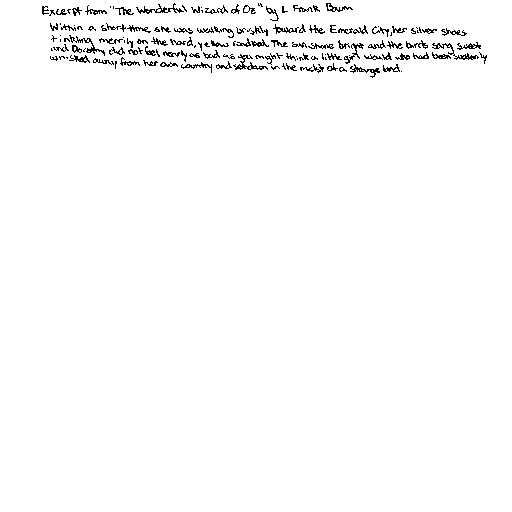 Excerpt from "The Wonderful Wizard of Oz" by L Frank Baum
Within a short time she was walking briskly toward the Emerald City, her silver shoes
tinkling merrily on the hard, yellow roadbed. The sun shone bright and the birds sang sweet
and Dorothy did not feel nearly as bad as you might think a little girl would who had been suddenly
whisked away from her own country and set down in the midst of a strange land.